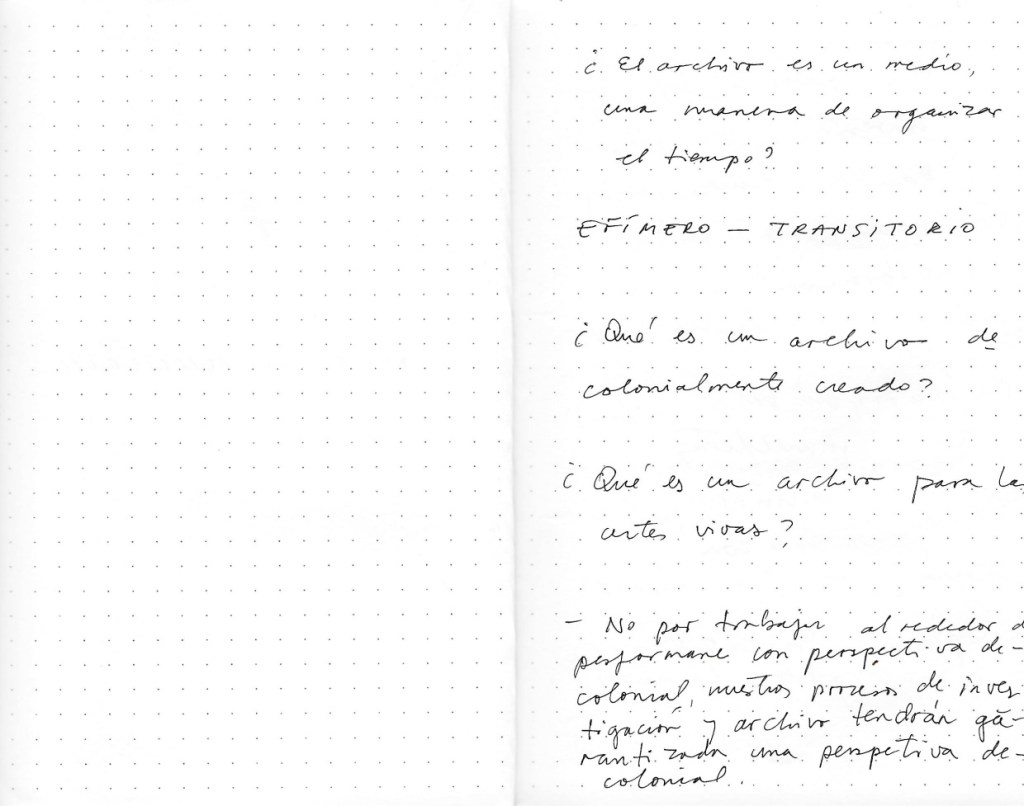 ¿ El archivo es un medio,
una manera de organizar
el tiempo?
EFÍMERO — TRANSITORIO
¿ Qué es un archivo de
colonialmente creado?
¿ Qué es un archivo para la
artes vivas?
- No por trabajar al rededor d
performane con perspectiva de-
colonial, nuestros procesos de inves
tigación y archivo tendrán ga-
rantizada una perspetiva de-
colonial.